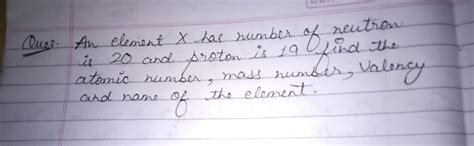 Ques. An element X has number of neutron
is 20 and proton is 19 find the
atomic number, mass number, Valency
and name of the element.